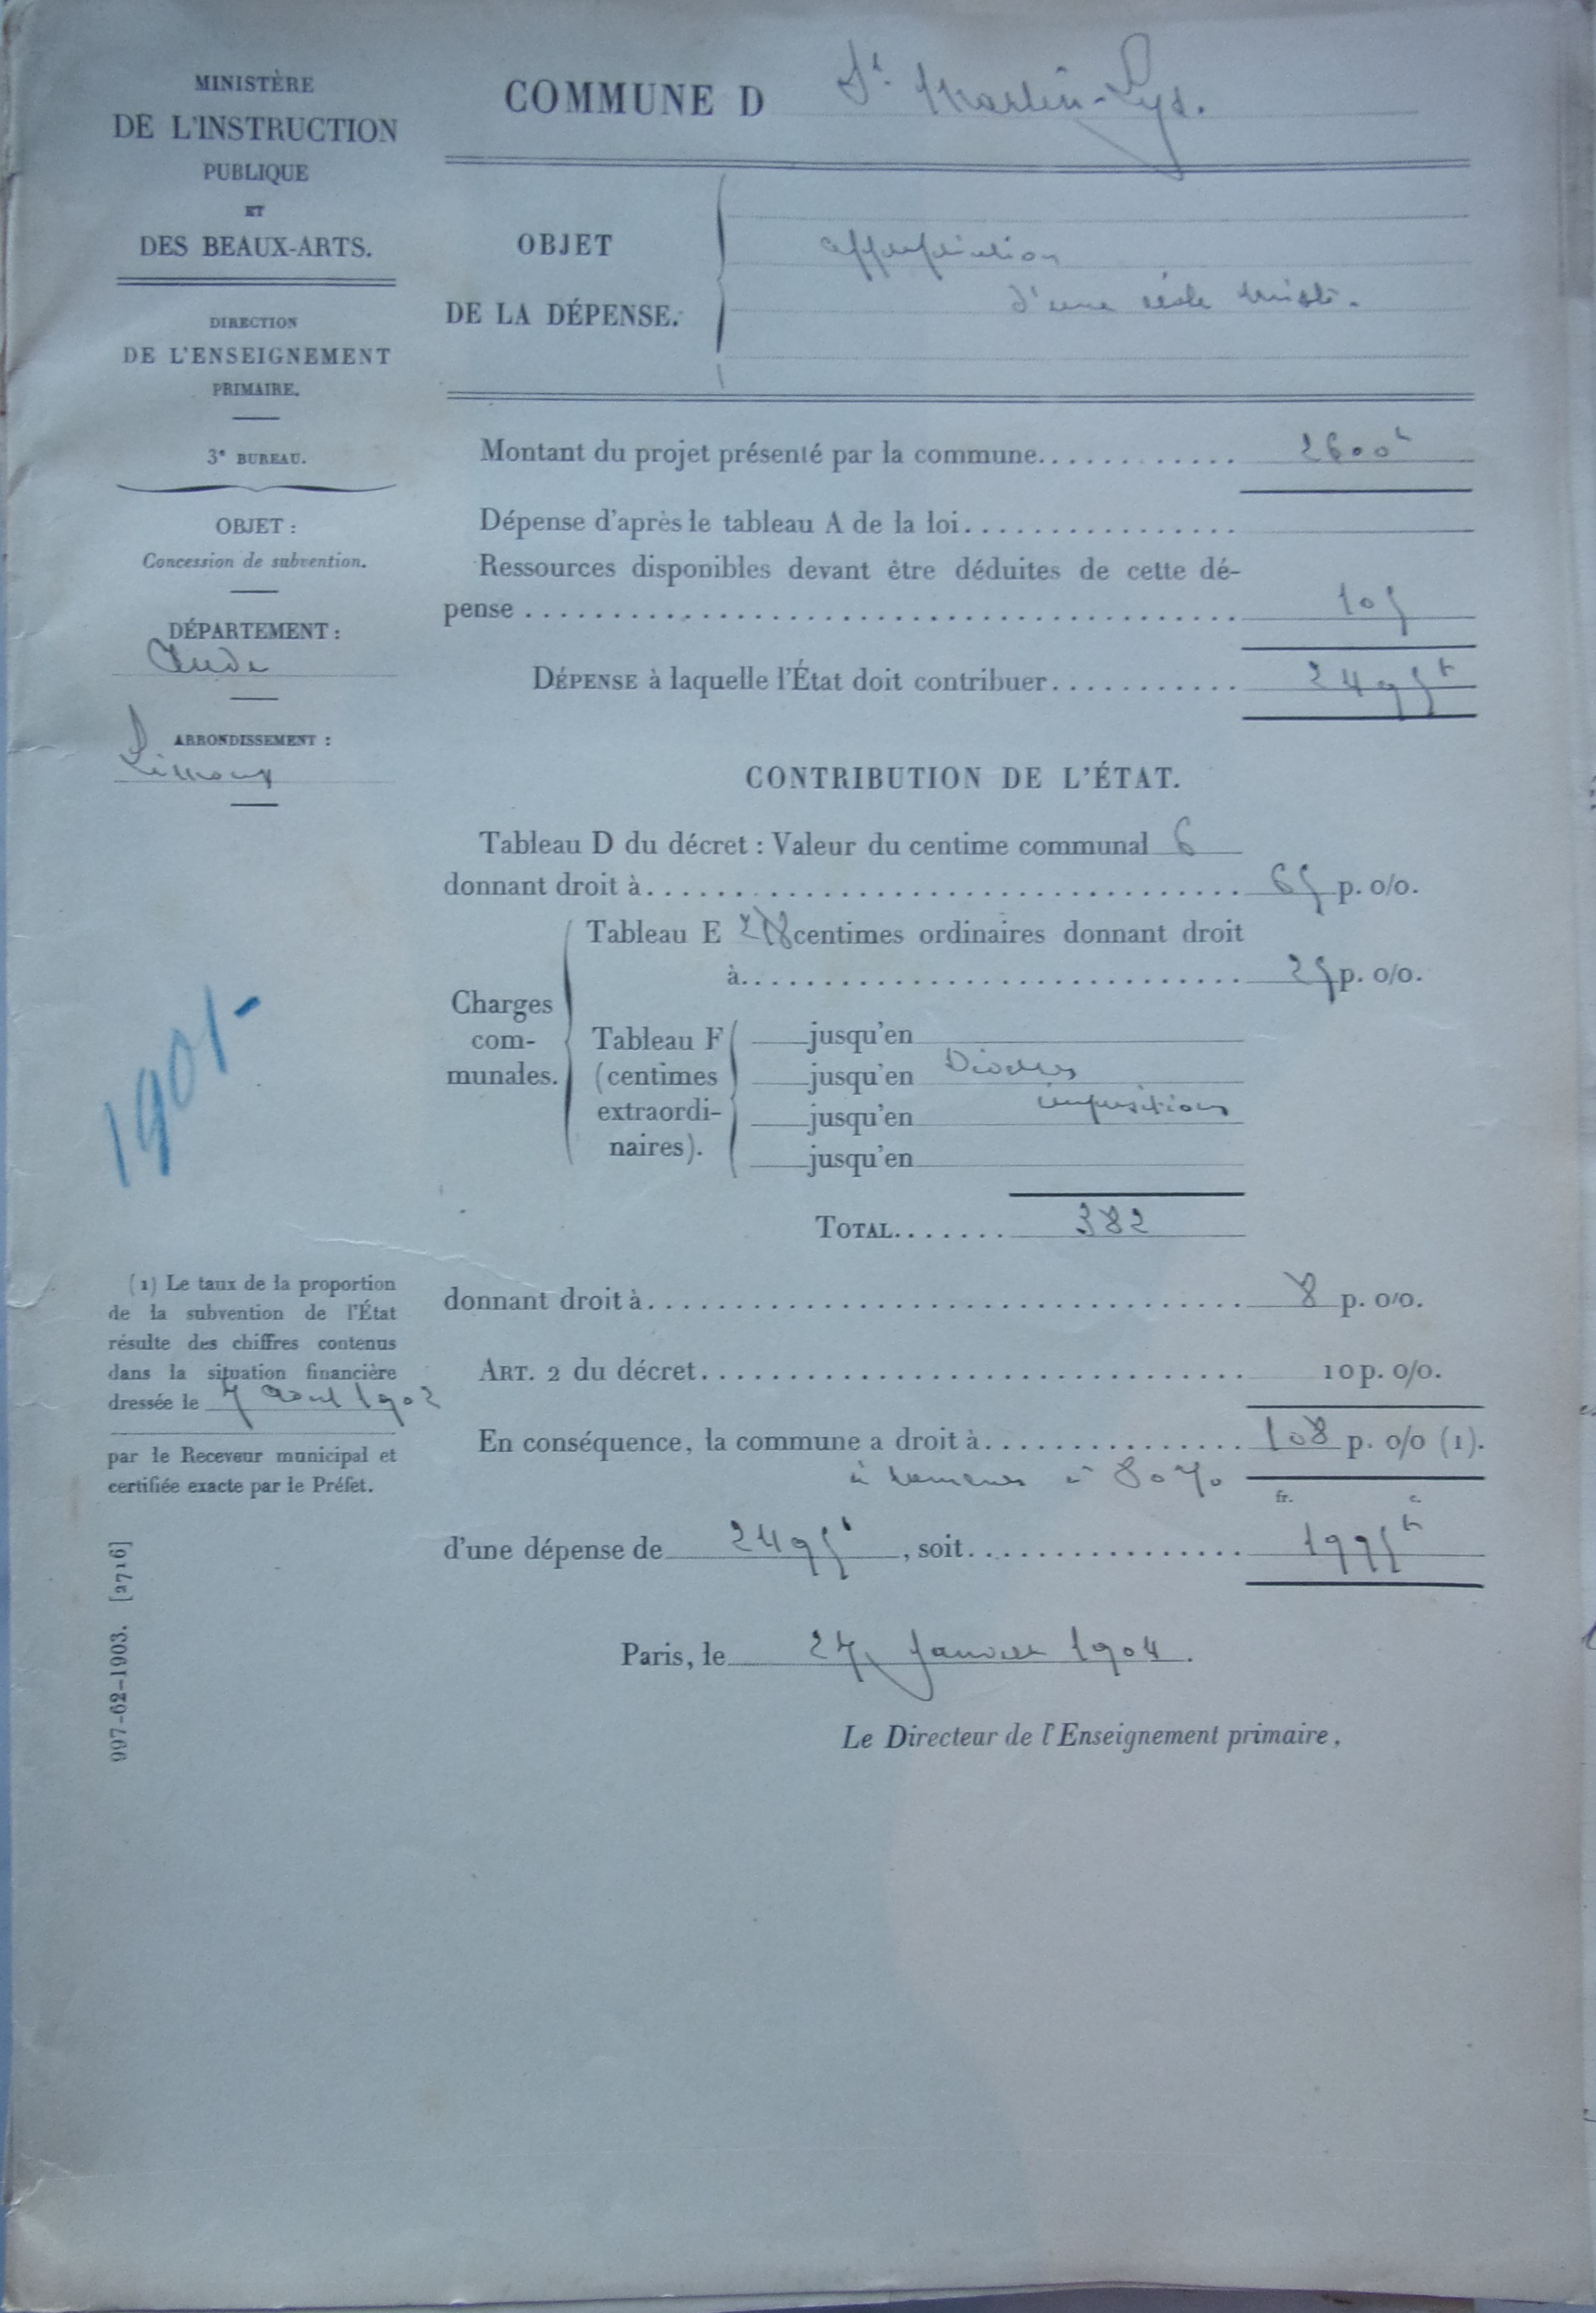 MINISTÈRE
DE L'INSTRUCTION
PUBLIQUE
ET
DES BEAUX-ARTS.
DIRECTION
DE L'ENSEIGNEMENT
PRIMAIRE.
3e BUREAU.
OBJET :
Concession de subvention.
DÉPARTEMENT :
Aude
ARRONDISSEMENT :
Limoux
1901-
(1) Le taux de la proportion
de la subvention de l'État
résulte des chiffres contenus
dans la situation financière
dressée le 7 août 1902
par le Receveur municipal et
certifiée exacte par le Préfet.
997-62-1903. [2716]
COMMUNE D St Martin-Lys.
OBJET
DE LA DÉPENSE.
appropriation
d'une école mixte.
Montant du projet présenté par la commune............ 2600f
Dépense d'après le tableau A de la loi................
Ressources disponibles devant être déduites de cette dé-
pense ........................................ 105
DÉPENSE à laquelle l'État doit contribuer........... 2495f
CONTRIBUTION DE L'ÉTAT.
Tableau D du décret : Valeur du centime communal 6
donnant droit à.................................. 65 p. 0/0.
Tableau E centimes ordinaires donnant droit
à............................ 25 p. 0/0.
Charges
com-
munales.
Tableau F
(centimes
extraordi-
naires).
jusqu'en
jusqu'en Diverses
jusqu'en impositions
jusqu'en
TOTAL....... 382
donnant droit à.................................. 8 p. 0/0.
ART. 2 du décret............................... 10 p. 0/0.
En conséquence, la commune a droit à............... 108 p. 0/0 (1).
à ramener à 80 %
fr. c.
d'une dépense de 2495f, soit................ 1995f
Paris, le 27 Janvier 1904.
Le Directeur de l'Enseignement primaire,